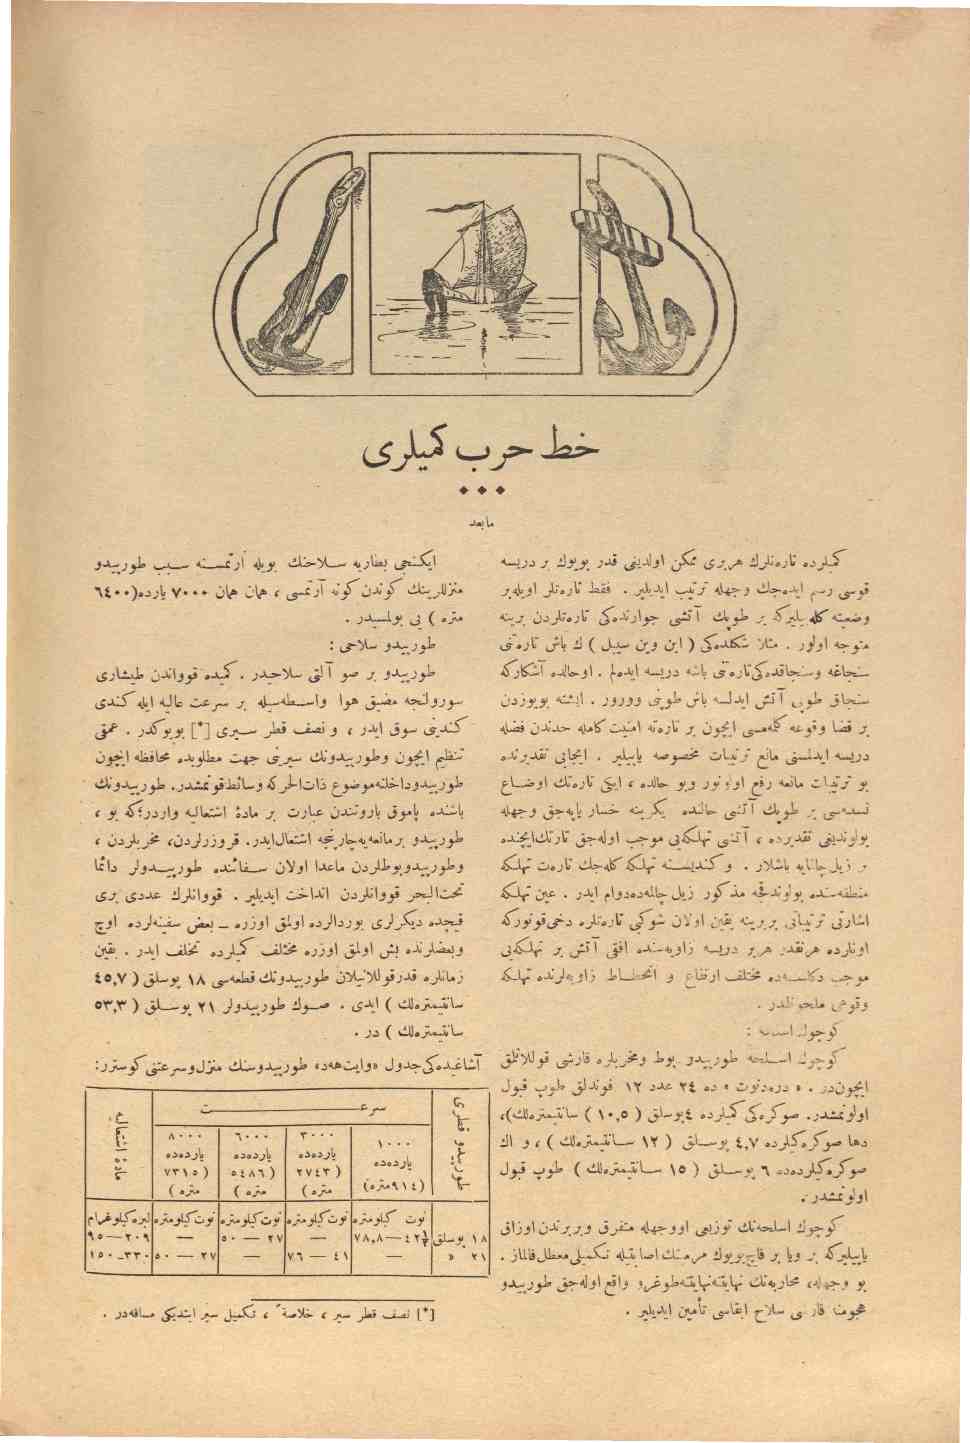 خط حرب كميلرى
مابعد
كميلرده تاره‌نلرك هربرى ممكن اولديغى قدر بويوك بر دريسه
قوسى رسم ايده‌جك وجهله ترتيب ايديلير . فقط تاره‌نلر اويله‌بر
وضعيته كله بيليركه بر طوپك آتشى جوارنده‌كى تاره‌تلردن برينه
متوجه اولور . مثلا شكلده‌كى ( اين وين سيبل ) ك باش تاره‌تنى
سنجاغه وسنجاقده‌كى تاره‌تنى باشه دريسه ايده‌لم . اوحالده آشكاركه
سنجاق طوپى آتش ايدلسه باش طوپنى وورور . ايشته بويوزدن
بر قضا وقوعه كلمه‌مسى ايچون بر تاره‌ته امنيت كامله حدندن فضله
دريسه ايدلسنى مانع ترتيبات مخصوصه ياپيلير . ايجابى تقديرنده
بو ترتيبات مانعه رفع اولونور وبو حالده ، ايكى تاره‌تك اوضاع
نسبه‌سى بر طوپك آتشى حالنده يكرينه خسار ياپه‌جق وجهله
بولونديغى تقديرده ، آتشى تهلكه‌يى موجب اوله‌جق تارتك ايچنده
بر زيل چالنايه باشلار . وكنديسنه تهلكه كله‌جك تاره‌ت تهلكه
منطقه‌سنده بولوندقجه مذكور زيل چالمه‌ده‌دوام ايدر . عين تهلكه
اشارتى ترتيباتى بربرينه يقين اولان شوكى تاره‌تلره دخى قونوركه
اونلرده هرنقدر هربر دريسه زاويه‌سنده افقى آتش بر تهلكه‌يى
موجب دكلسه‌ده مختلف ارتفاع و انحطاط زاويه‌لرنده تهلكه
وقوعى ملحوظدر .
كوچوك اسلحه :
كوچوك اسلحه طورپيدو بوط ومخربلره قارشى قوللانلمق
ايچوندر . « دره‌دنوت » ده ٢٤ عدد ١٢ فوندلق طوپ قبول
اولونمشدر. صوكره‌كى كميلرده ٤ پوسلق ( ١٠,٥ ) سانتيمتره‌لك)،
دها صوكره‌كيلرده ٤,٧ پوسلق ( ١٢ سانتيمتره‌لك ) ، و اك
صوكره‌كيلرده‌ده ٦ پوسلق ( ١٥ سانتيمتره‌لك ) طوپ قبول
اولونمشدر.
كوچوك اسلحه‌نك توزيعى اووجهله متفرق وبربرندن اوزاق
ياپيليركه بر ويا بر قاچ بويوك مرمينك اصابتيله تكميلى معطل قالماز .
بو وجهله، محاربه‌نك نهايتنه‌نهايتنه‌طوغرو واقع اوله‌جق طورپيدو
هجومنا قارشى سلاح ابقاسى تأمين ايديلير .
ايكنجى بطاريه سلاحنك بويله آرتمسنه سبب طورپيدو
منزللرينك كوندن كونه آرتمسى ، همان همان ٧٠٠٠ يارده(٦٤٠٠
متره ) يى بولمسيدر .
طورپيدو سلاحى :
طورپيدو بر صو آلتى سلاحيدر . كميده قوواندن طيشارى
سورولنجه مضيق هوا واسطه‌سيله بر سرعت عاليه ايله كندى
كندينى سوق ايدر ، و نصف قطر سيرى [*] بويوكدر . عمقى
تنظيم ايچون وطورپيدونك سيرنى جهت مطلوبده محافظه ايچون
طورپيدوداخلنه‌موضوع ذات‌الحركه وسائط‌قونمشدر. طورپيدونك
باشنده پاموق باروتندن عبارت بر مادهٔ اشتعاليه واردر؛كه بو ،
طورپيدو برمانعه‌يه‌چارپنجه اشتعال‌ايدر. قروزرلردن، مخربلردن ،
وطورپيدوبوطلردن ماعدا اولان سفائنده طورپيدولر دائما
تحت‌البحر قووانلردن انداخت ايديلير . قووانلرك عددى برى
قيچده ديكرلرى بوردالرده اولمق اوزره ــ بعض سفينه‌لرده اوچ
وبعضلرنده بش اولمق اوزره مختلف كميلرده تخلف ايدر . يقين
زمانلره قدرقوللانيلان طورپيدونك قطعه‌سى ١٨ پوسلق ( ٤٥,٧
سانتيمتره‌لك ) ايدى . صوك طورپيدولر ٢١ پوسلق ( ٥٣,٣
سانتيمتره‌لك ) در .
آشاغيده‌كى جدول «وايت هه‌د» طورپيدوسنك منزل وسرعتنى كوسترر:
طورپيدو قطرى
سرعت
مادهٔ اشتعاليه
١٠٠٠ يارده‌ده (٩١٤ متره)
٣٠٠٠ يارده‌ده ( ٢٧٤٣ متره )
٦٠٠٠ يارده‌ده ( ٥٤٨٦ متره )
٨٠٠٠ يارده‌ده ( ٧٣١٥ متره )
نوت كيلومتره نوت كيلومتره نوت كيلومتره نوت كيلومتره ليبره كيلوغرام
١٨ پوسلق ٤٢½ — ٧٨,٨ — ٢٧ — ٥٠ — ٢٠٩—٩٥
٢١ « — ٤١ — ٧٦ — ٢٧ — ٥٠ ٣٣٠—١٥٠
[*] نصف قطر سير ، خلاصةً ، تكميل سير ايتديكى مسافه‌در .